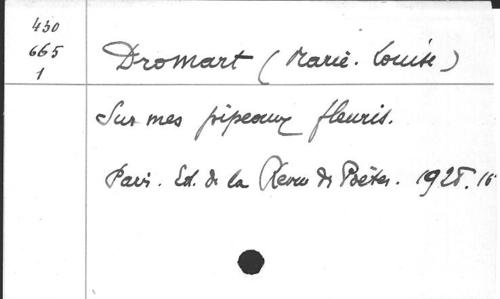 430
665
1
Dromart (Marie-Louise)
Sur mes pipeaux fleuris.
Paris. Ed. de la Revue des Poètes. 1928. 16